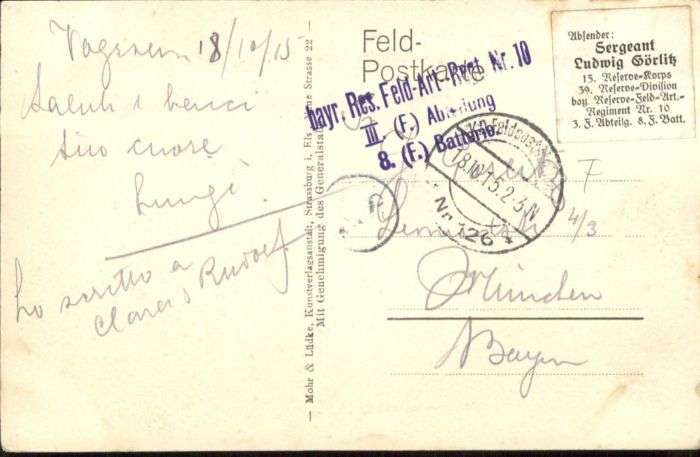 18/10/15
Saluti e bacci
tuo cuore
ho scritto a
Clara e Rudolf
— Mohr & Lüdke, Kunstverlagsanstalt, Strassburg i. Els. Strasse 22 —
Mit Genehmigung des Generalstabs
Feld-
Postkarte
bayr. Res. Feld-Art.-Regt. Nr. 10
III. (F.) Abteilung
8. (F.) Batterie.
Absender:
Sergeant
Ludwig Görlitz
15. Reserve-Korps
39. Reserve-Division
bay. Reserve-Feld-Art.-
Regiment Nr. 10
3. F. Abteilg. 8. F. Batt.
K.D. Feldpost
18.10.15.2-3N
Nr. 126
4/3
München
Bayern